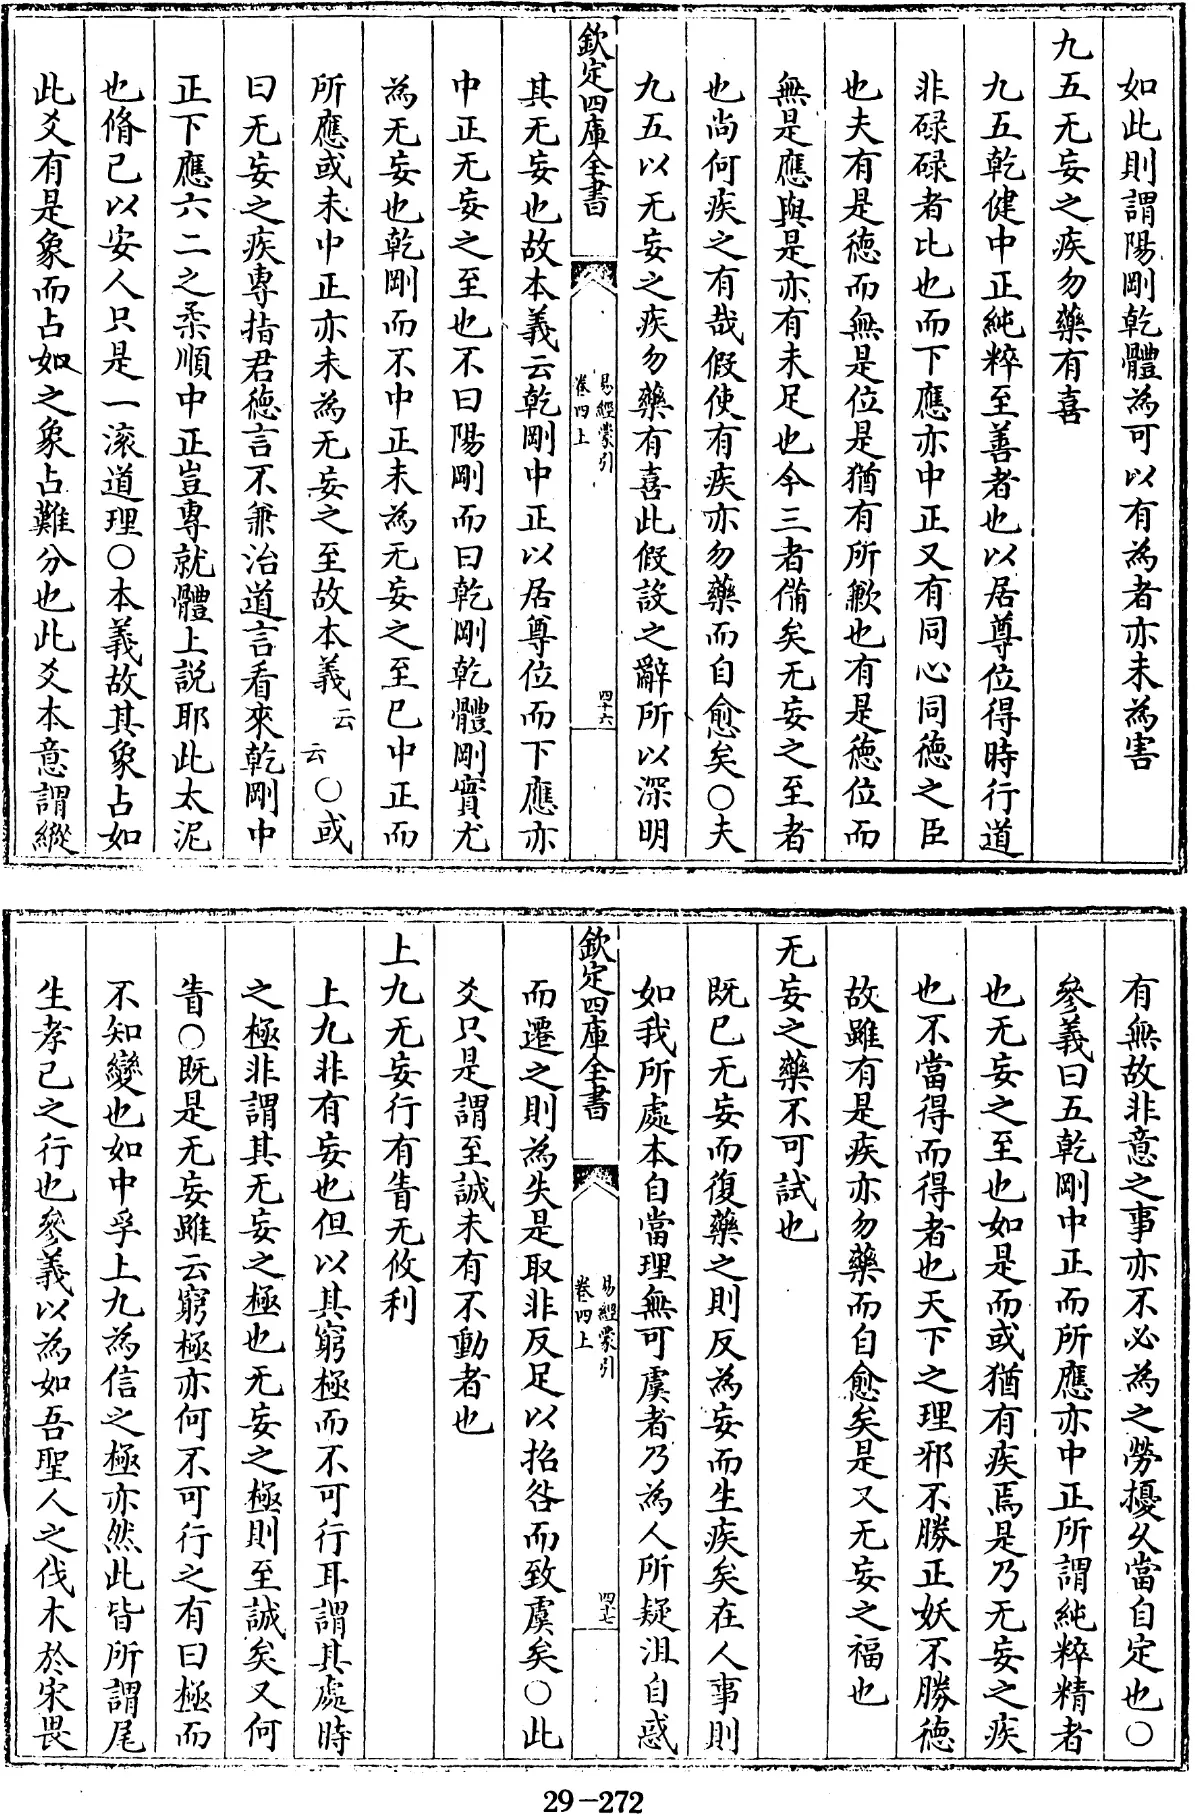 如此則謂陽剛乾體為可以有為者亦未為害
九五无妄之疾勿藥有喜
九五乾健中正純粹至善者也以居尊位得時行道
非碌碌者比也而下應亦中正又有同心同徳之臣
也夫有是徳而無是位是猶有所歉也有是徳位而
無是應與是亦有未足也今三者備矣无妄之至者
也尚何疾之有哉假使有疾亦勿藥而自愈矣○夫
九五以无妄之疾勿藥有喜此假設之辭所以深明
欽定四庫全書
易經蒙引
卷四上
四十六
其无妄也故本義云乾剛中正以居尊位而下應亦
中正无妄之至也不曰陽剛而曰乾剛乾體剛實尤
為无妄也乾剛而不中正未為无妄之至已中正而
所應或未中正亦未為无妄之至故本義云云○或
曰无妄之疾專指君徳言不兼治道言看來乾剛中
正下應六二之柔順中正豈專就體上説耶此太泥
也脩已以安人只是一滚道理○本義故其象占如
此爻有是象而占如之象占難分也此爻本意謂縱
有無故非意之事亦不必為之勞擾久當自定也○
參義曰五乾剛中正而所應亦中正所謂純粹精者
也无妄之至也如是而或猶有疾焉是乃无妄之疾
也不當得而得者也天下之理邪不勝正妖不勝徳
故雖有是疾亦勿藥而自愈矣是又无妄之福也
无妄之藥不可試也
既已无妄而復藥之則反為妄而生疾矣在人事則
如我所處本自當理無可虞者乃為人所疑沮自惑
欽定四庫全書
易經蒙引
卷四上
四十七
而遷之則為失是取非反足以招咎而致虞矣○此
爻只是謂至誠未有不動者也
上九无妄行有眚无攸利
上九非有妄也但以其窮極而不可行耳謂其處時
之極非謂其无妄之極也无妄之極則至誠矣又何
眚○既是无妄雖云窮極亦何不可行之有曰極而
不知變也如中孚上九為信之極亦然此皆所謂尾
生孝已之行也參義以為如吾聖人之伐木於宋畏
29-272